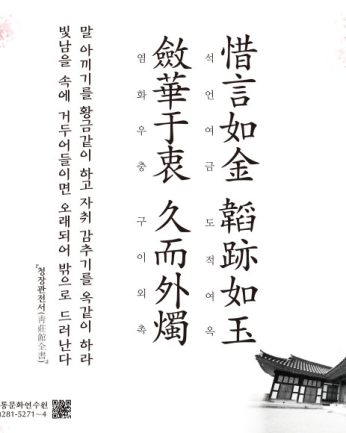 惜言如金 韜跡如玉
석언여금 도적여옥
斂華于衷 久而外燭
염화우충 구이외촉
말 아끼기를 황금같이 하고 자취 감추기를 옥같이 하라
빛남을 속에 거두어들이면 오래되어 밖으로 드러난다
『청장관전서(靑莊館全書)』
통문화연수원
281-5271~4